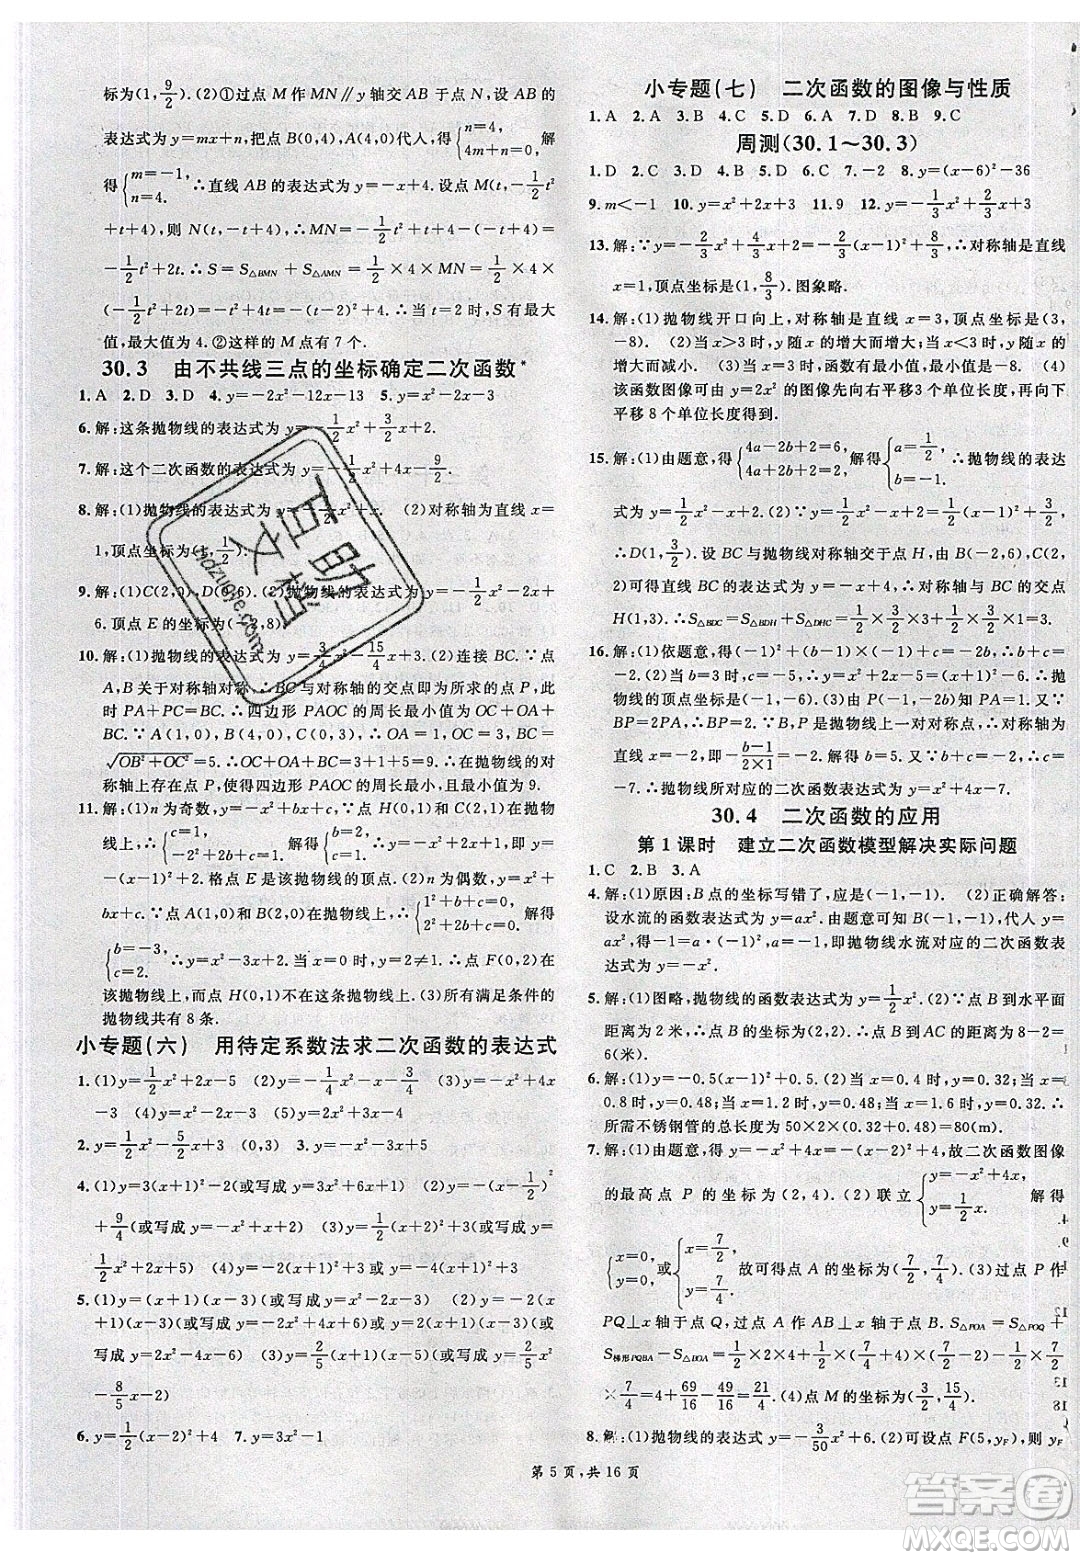 标为(1,9/2).(2)①过点 M 作 MN∥y 轴交 AB 于点 N,设 AB 的
表达式为 y=mx+n,把点 B(0,4),A(4,0)代人,得{n=4, 4m+n=0, 解
得{m=-1, n=4. ∴直线 AB 的表达式为 y=-x+4.设点 M(t,-1/2t²
+t+4),则 N(t,-t+4),∴MN=-1/2t²+t+4-(-t+4)=
-1/2t²+2t.∴S=S△BMN+S△AMN=1/2×4×MN=1/2×4×
(-1/2t²+2t)=-t²+4t=-(t-2)²+4.∴当 t=2 时,S 有最大
值,最大值为 4.②这样的 M 点有 7 个.
30.3 由不共线三点的坐标确定二次函数*
1.A 2.D 3.D 4.y=-2x²-12x-13 5.y=x²-2x-3
6.解:这条抛物线的表达式为 y=1/2x²+3/2x+2.
7.解:这个二次函数的表达式为 y=1/2x²+4x-9/2.
8.解:(1)抛物线的表达式为 y=-1/2x²+x.(2)对称轴为直线 x=
1,顶点坐标为(1,1/2).
9.解:(1)C(2,0),D(0,6).(2)抛物线的表达式为 y=-1/2x²-2x+
6.顶点 E 的坐标为(-2,8).
10.解:(1)抛物线的表达式为 y=3/4x²-15/4x+3.(2)连接 BC.∵点
A,B 关于对称轴对称,∴BC 与对称轴的交点即为所求的点 P,此
时 PA+PC=BC.∴四边形 PAOC 的周长最小值为 OC+OA+
BC.∵A(1,0),B(4,0),C(0,3),∴OA=1,OC=3,BC=
√OB²+OC²=5.∴OC+OA+BC=1+3+5=9.∴在抛物线的对
称轴上存在点 P,使得四边形 PAOC 的周长最小,最小值为 9.
11.解:(1)n 为奇数,y=-x²+bx+c,∵点 H(0,1)和 C(2,1)在抛物
线上,∴{c=1, -2²+2b+c=1. 解得{c=1, b=2. ∴抛物线的表达式为 y=-x²+2x+
1=-(x-1)²+2.格点 E 是该抛物线的顶点.(2)n 为偶数,y=x²
+bx+c,∵点 A(1,0)和 B(2,0)在抛物线上,∴{1²+1+c=0, 2²+2b+c=0. 解得
{b=-3, c=2. ∴y=x²-3x+2.当 x=0 时,y=2≠1,∴点 F(0,2)在
该抛物线上,而点 H(0,1)不在这条抛物线上.(3)所有满足条件的
抛物线共有 8 条.
小专题(六) 用待定系数法求二次函数的表达式
1.(1)y=1/2x²+2x-5 (2)y=1/4x²-x-3/4 (3)y=-x²+4x
-3 (4)y=x²-2x+1
2.y=1/2x²-5/2x+3 (0,3) 3.y=-x²-4x+5
4.(1)y=3(x+1)²-2(或写成 y=3x²+6x+1) (2)y=-(x-1/2)²
+9/4(或写成 y=-x²+x+2) (3)y=1/2(x+1)²-2(或写成 y=
1/2x²+x-3/2) (4)y=-(x-2)²+1(或写成 y=-x²+4x-3)
5.(1)y=(x+1)(x-3)(或写成 y=x²-2x-3) (2)y=-2(x+
1)(x-3)(或写成 y=-2x²+4x+6) (3)y=(x-1)(x-3)(或
写成 y=x²-4x+3) (4)y=1/5(x+2)(x-5)(或写成 y=2/5x²
-8/5x-2)
6.y=1/2(x-2)²+4 7.y=3x²-1
小专题(七) 二次函数的图像与性质
1.A 2.A 3.B 4.C 5.A 6.A 7.D 8.B 9.C
周测(30.1～30.3)
1.D 2.C 3.D 4.A 5.D 6.C 7.-2 8.y=(x-6)²-36
9.m<-1 10.y=x²+2x+3 11.9 12.y=-1/3x²+2/3x+3
13.解:∵y=-2/3x²+4/3x+2=-2/3(x-1)²+8/3,∴对称轴是直线
x=1,顶点坐标为(1,8/3).图象略.
14.解:(1)抛物线开口向上,对称轴是直线 x=3,顶点坐标为(3,
-8).(2)当 x>3 时,y 随 x 的增大而增大;当 x<3 时,y 随 x
的增大而减小.(3)当 x=3 时,函数有最小值,最小值是-8.(4)
该函数图像可由 y=2x² 的图像先向右平移3 个单位长度,再向下
平移 8 个单位长度得到.
15.解:(1)由题意,得{4a-2b+2=6, 4a+2b+2=2. 解得{a=1/2, b=-1. ∴抛物线的表达
式为 y=1/2x²-x+2.(2)∵y=1/2x²-x+2=1/2(x-1)²+3/2,
∴D(1,3/2).设 BC 与抛物线的对称轴交于点 H,由 B(-2,6),C(2,
2)可得直线 BC 的表达式为 y=-x+4.∴对称轴与 BC 的交点
H(1,3).∴S△BDC=S△BDH+S△DHC=1/2×3/2×3+1/2×3/2×1=3.
16.解:(1)依题意,得 y=(x-1)(x+3)-2=(x+1)²-6.∴抛
物线的顶点坐标为(-1,-6).(2)由 P(-1,-2b)知 PA=1.又∵
BP=2PA,∴BP=2.∵抛物线上的点具有对称性,∴抛物线的对称轴为
直线 x=-2.∴-(b-1)/(2×1)=-2.∴b=5.∴y=x²+4x+5×(-2)+3=x²+4x
-7.∴抛物线所对应的二次函数表达式为 y=x²+4x-7.
30.4 二次函数的应用
第 1 课时 建立二次函数模型解决实际问题
1.C 2.B 3.A
4.解:(1)原因:B 点的坐标写错了,应是(-1,-1).(2)正确解答:
设水流的函数表达式为 y=ax².由题意可知 B(-1,-1),代人 y=
ax²,得-1=a·(-1)²,∴a=-1.即抛物线水流对应的二次函数表
达式为 y=-x².
5.解:(1)图略,抛物线的函数表达式为 y=1/2x².(2)∵点 B 到水平面
距离为 2 米,∴点 B 的坐标为(2,2).∴点 B 到 AC 的距离为 8-2=
6(米).
6.解:(1)y=-0.5(x-1)²+0.5.(2)当 x=0.2 和 x=0.4 时,分别
得 y=0.32,y=0.48;当立柱高 0.48,当 x=0.4 时,y=0.32.∴
所需不锈钢管的总长度为 50×2×(0.32+0.48)=80(m).
7.解:(1)由题意,得 y=-x²+4x=-(x-2)²+4,故二次函数图像
的最高点 P 的坐标为(2,4).(2)联立{y=-x²+4x, y=1/2x. 解得
{x=0, y=0. 或{x=7/2, y=7/4. 故可得点 A 的坐标为(7/2,7/4).(3)过点 P 作
PQ⊥x 轴于点 Q,过点 A 作 AB⊥x 轴于点 B.S△POA=S△POQ+
S梯形PQBA-S△BOA=1/2×2×4+1/2×(7/4+4)×(7/2-2)-1/2×7/2
×7/4=4+69/16-49/16=21/4.(4)点 M 的坐标为(3/2,15/4).
8.解:(1)抛物线的表达式为 y=-3/50x²+6.(2)可设点 F(5,yF),则 yF
第 5 页,共 16 页
互助文档
hdzuoye.com
答案圈
MXQE.COM